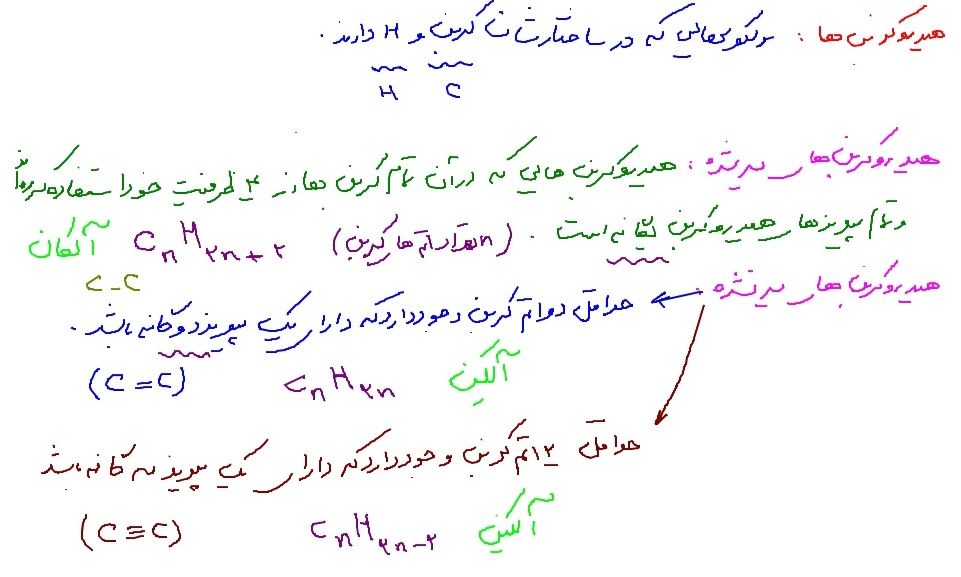 هیدروکربن ها : مولکولهایی که در ساختارشان کربن و H دارند .
H C
هیدروکربن های سیرشده : هیدروکربن هایی که در آن تمام کربن ها از ۴ ظرفیت خود استفاده کرده‌اند
و تمام پیوندهای هیدروکربن یگانه است . (n تعداد اتم های کربن) CnH۲n+۲ آلکان
C-C
هیدروکربن های سیرنشده :
حداقل دو اتم کربن وجود دارد که دارای یک پیوند دوگانه باشد .
(C=C) CnH۲n آلکن
حداقل ۲ اتم کربن وجود دارد که دارای یک پیوند سه گانه باشد
(C≡C) CnH۲n-۲ آلکین